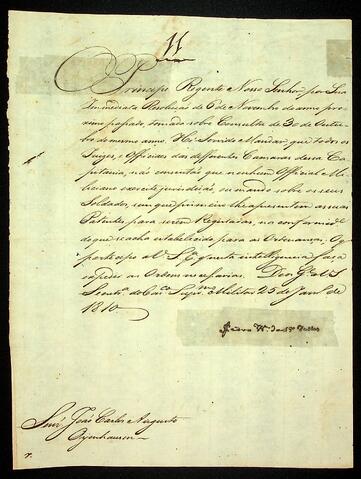 Principe Regente Nosso Senhor, por Sua
Immediata Resolução de 6 de Novembro do anno pro
ximo passado, tomada sobre Consulta de 30 de Outu
bro do mesmo anno. He Servido Mandar, que todos os
Juizes, e Officiaes das differentes Camaras dessa Ca
pitania, não consentão que nenhum Official Mi
liciano exercite jurisdição, ou mando sobre os seus
Soldados, sem que primeiro lhe apresentem as suas
Patentes para serem Registadas, na conformide
do que se acha estabelecido para as Ordenanças. O q
participo a V. S. pa q nesta intelligencia faça
expedir as Ordens necessarias. Deos Ge a V. S.
Secreta do Cono Supmo Militar 25 de Janro de
1810
Snr João Carlos Augusto
Oyenhausen